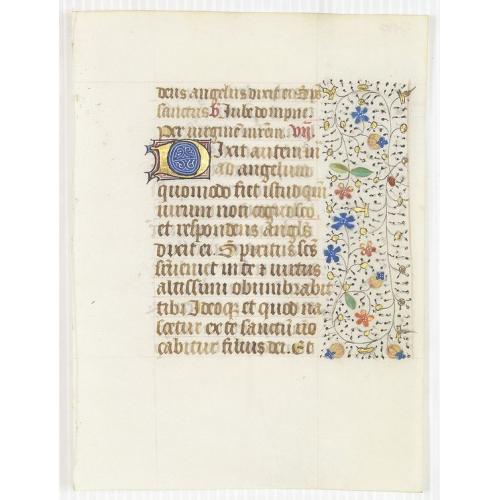 dens angelus dixit ei Sps
sanctus b Jube dompne
Per virginē mrem. vij
Dixit autem ma
ad angelum
quomodo fiet istud qm̄
uirum non cognosco
et respondens angls
dixit ei. Spiritus scs
seruenet in te z uirtus
altissimi obumbrabit
tibi Ideoqz et quod na
scetur ex te sanctū uo
cabitur filius dei. Et